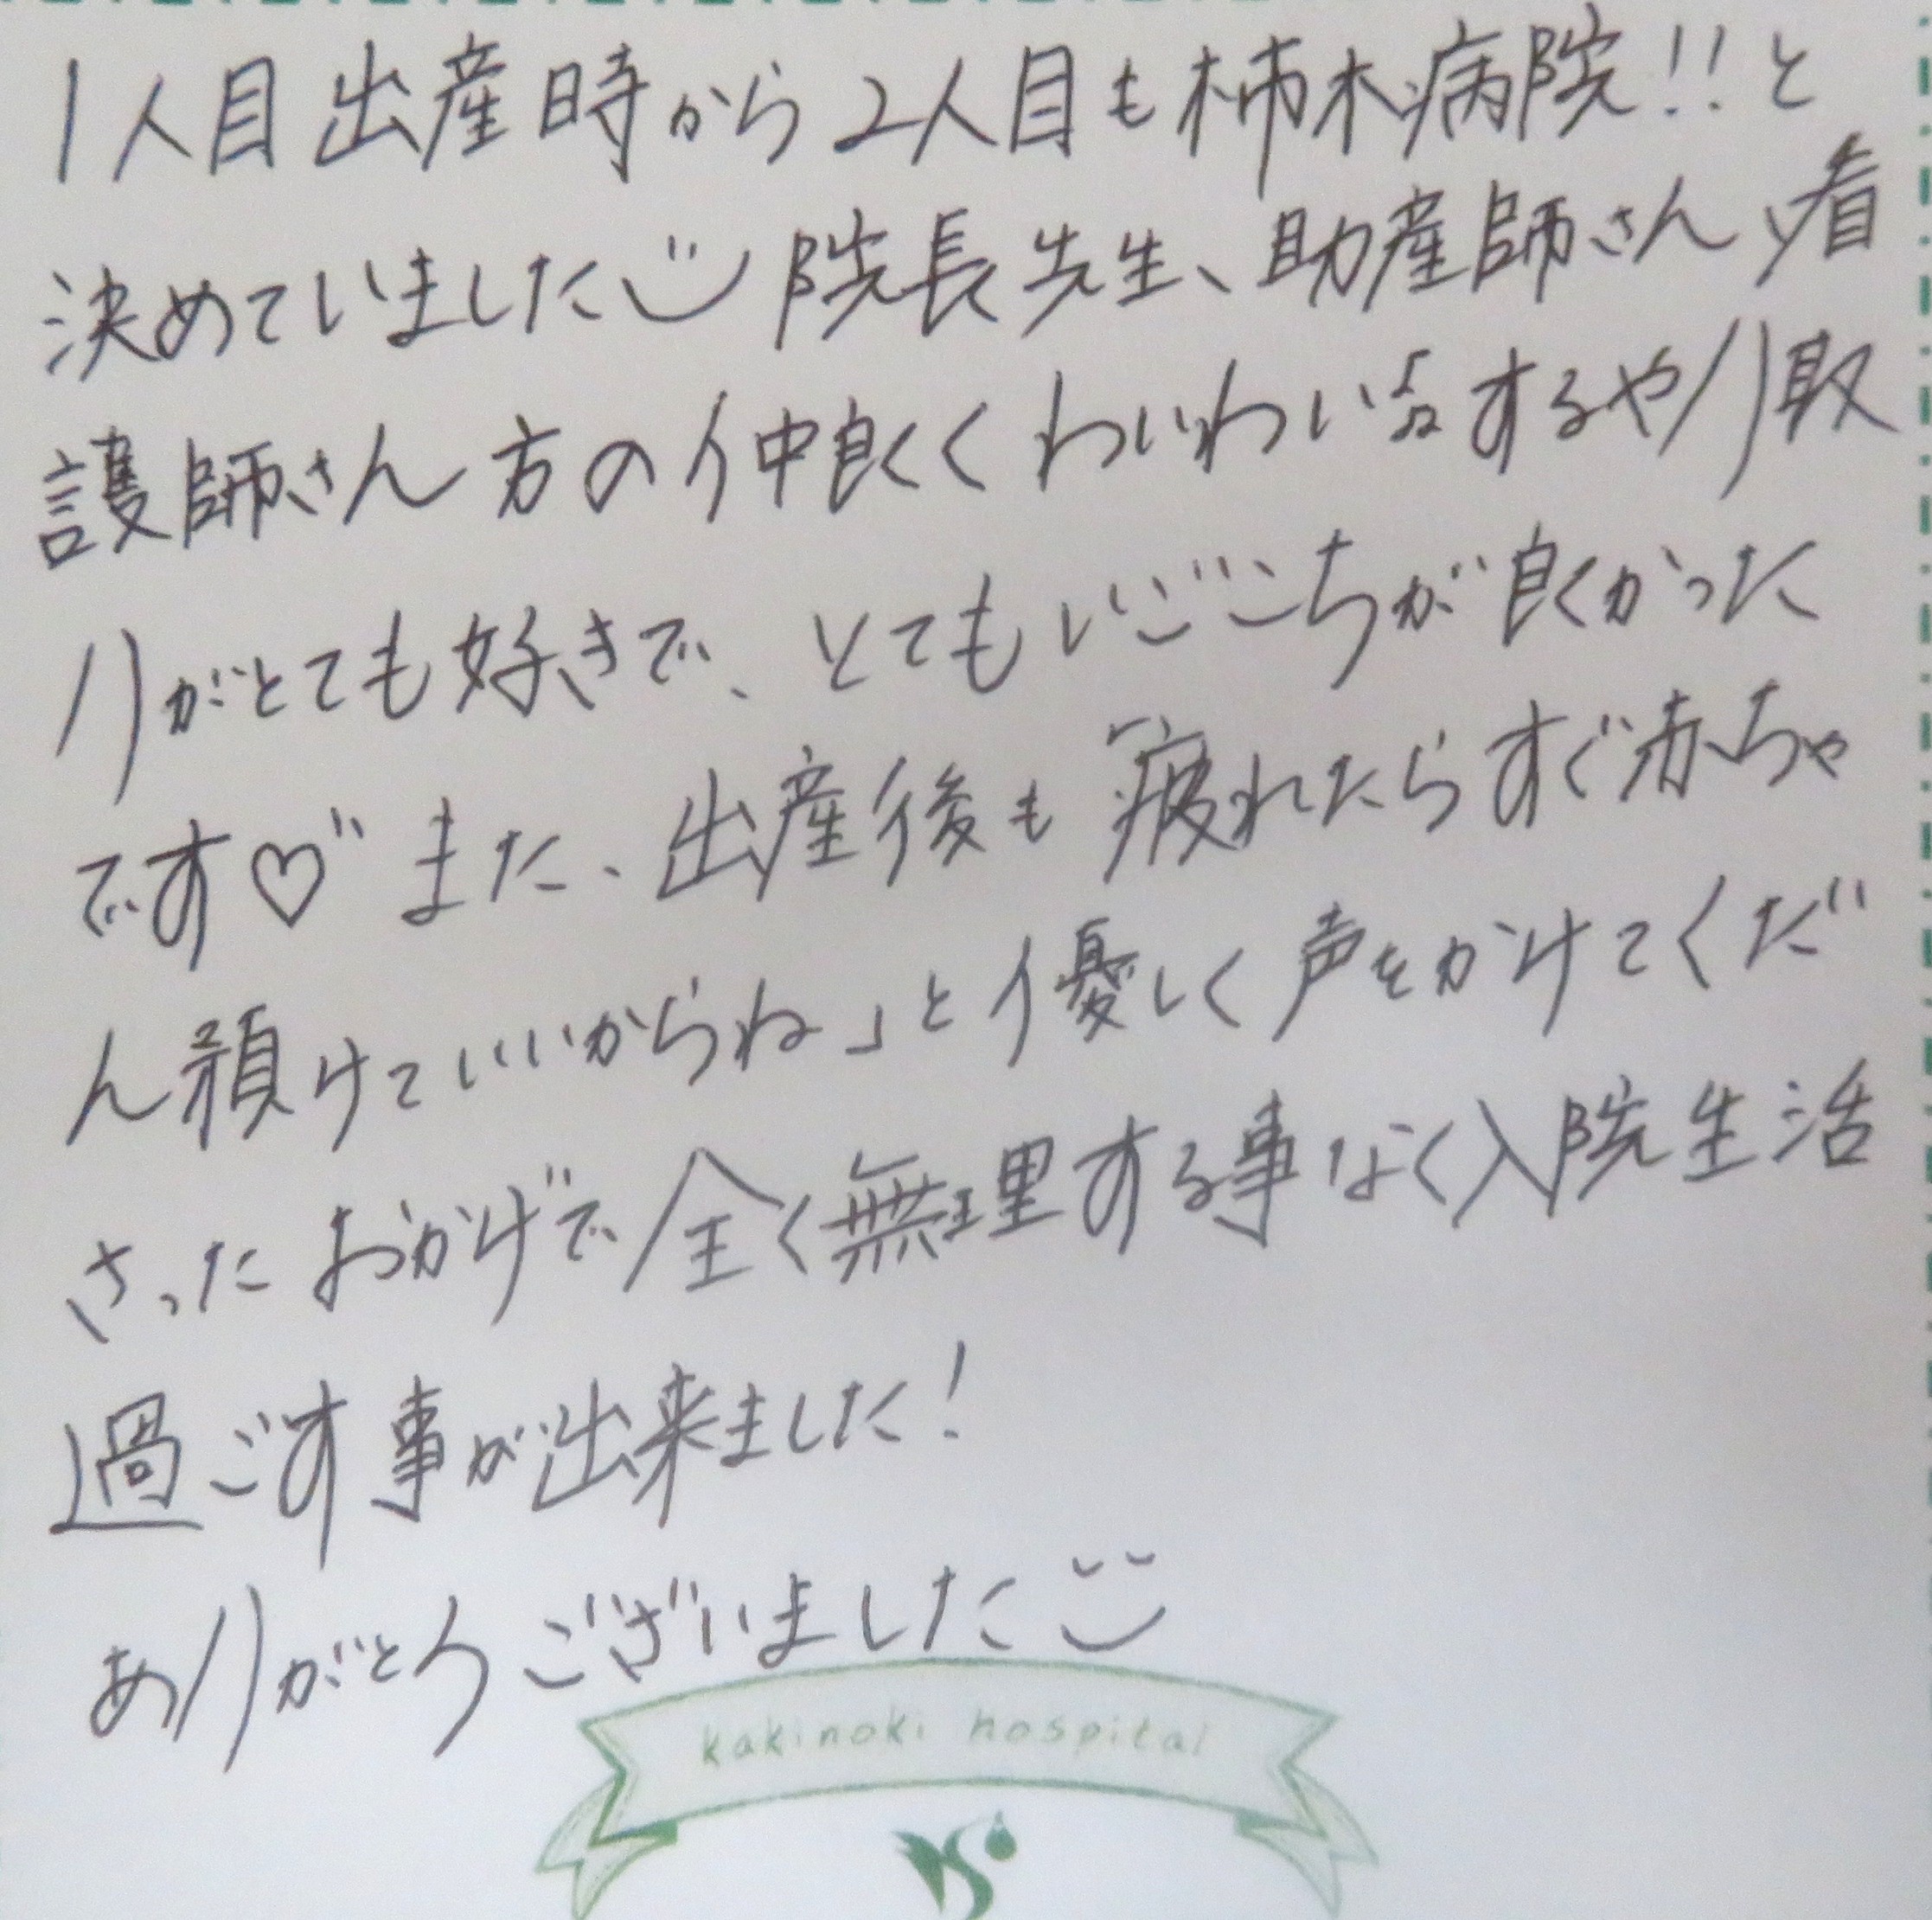 1人目出産時から2人目も柿木病院!!と
決めていました 院長先生、助産師さん、看
護師さん方の仲良くわいわい♫するやり取
りがとても好きで、とてもいごこちが良かった
です♡" また、出産後も「疲れたらすぐ赤ちゃ
ん預けていいからね」と優しく声をかけてくだ
さったおかげで全く無理する事なく入院生活
過ごす事が出来ました!
ありがとうございました
kakinoki hospital